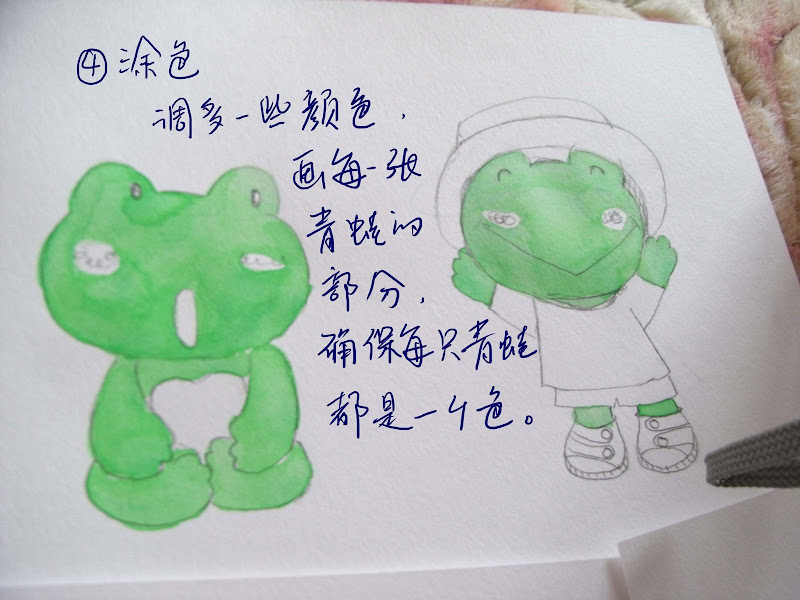 ④涂色
调多一些颜色，
画每一张
青蛙的
部分，
确保每只青蛙
都是一个色。